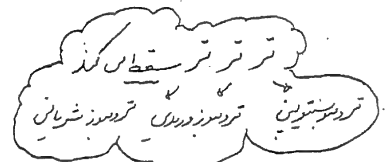 تر تر تر سقط کند
ترومبوسیتوپنی ترومبوز وریدی ترومبوز شریانی